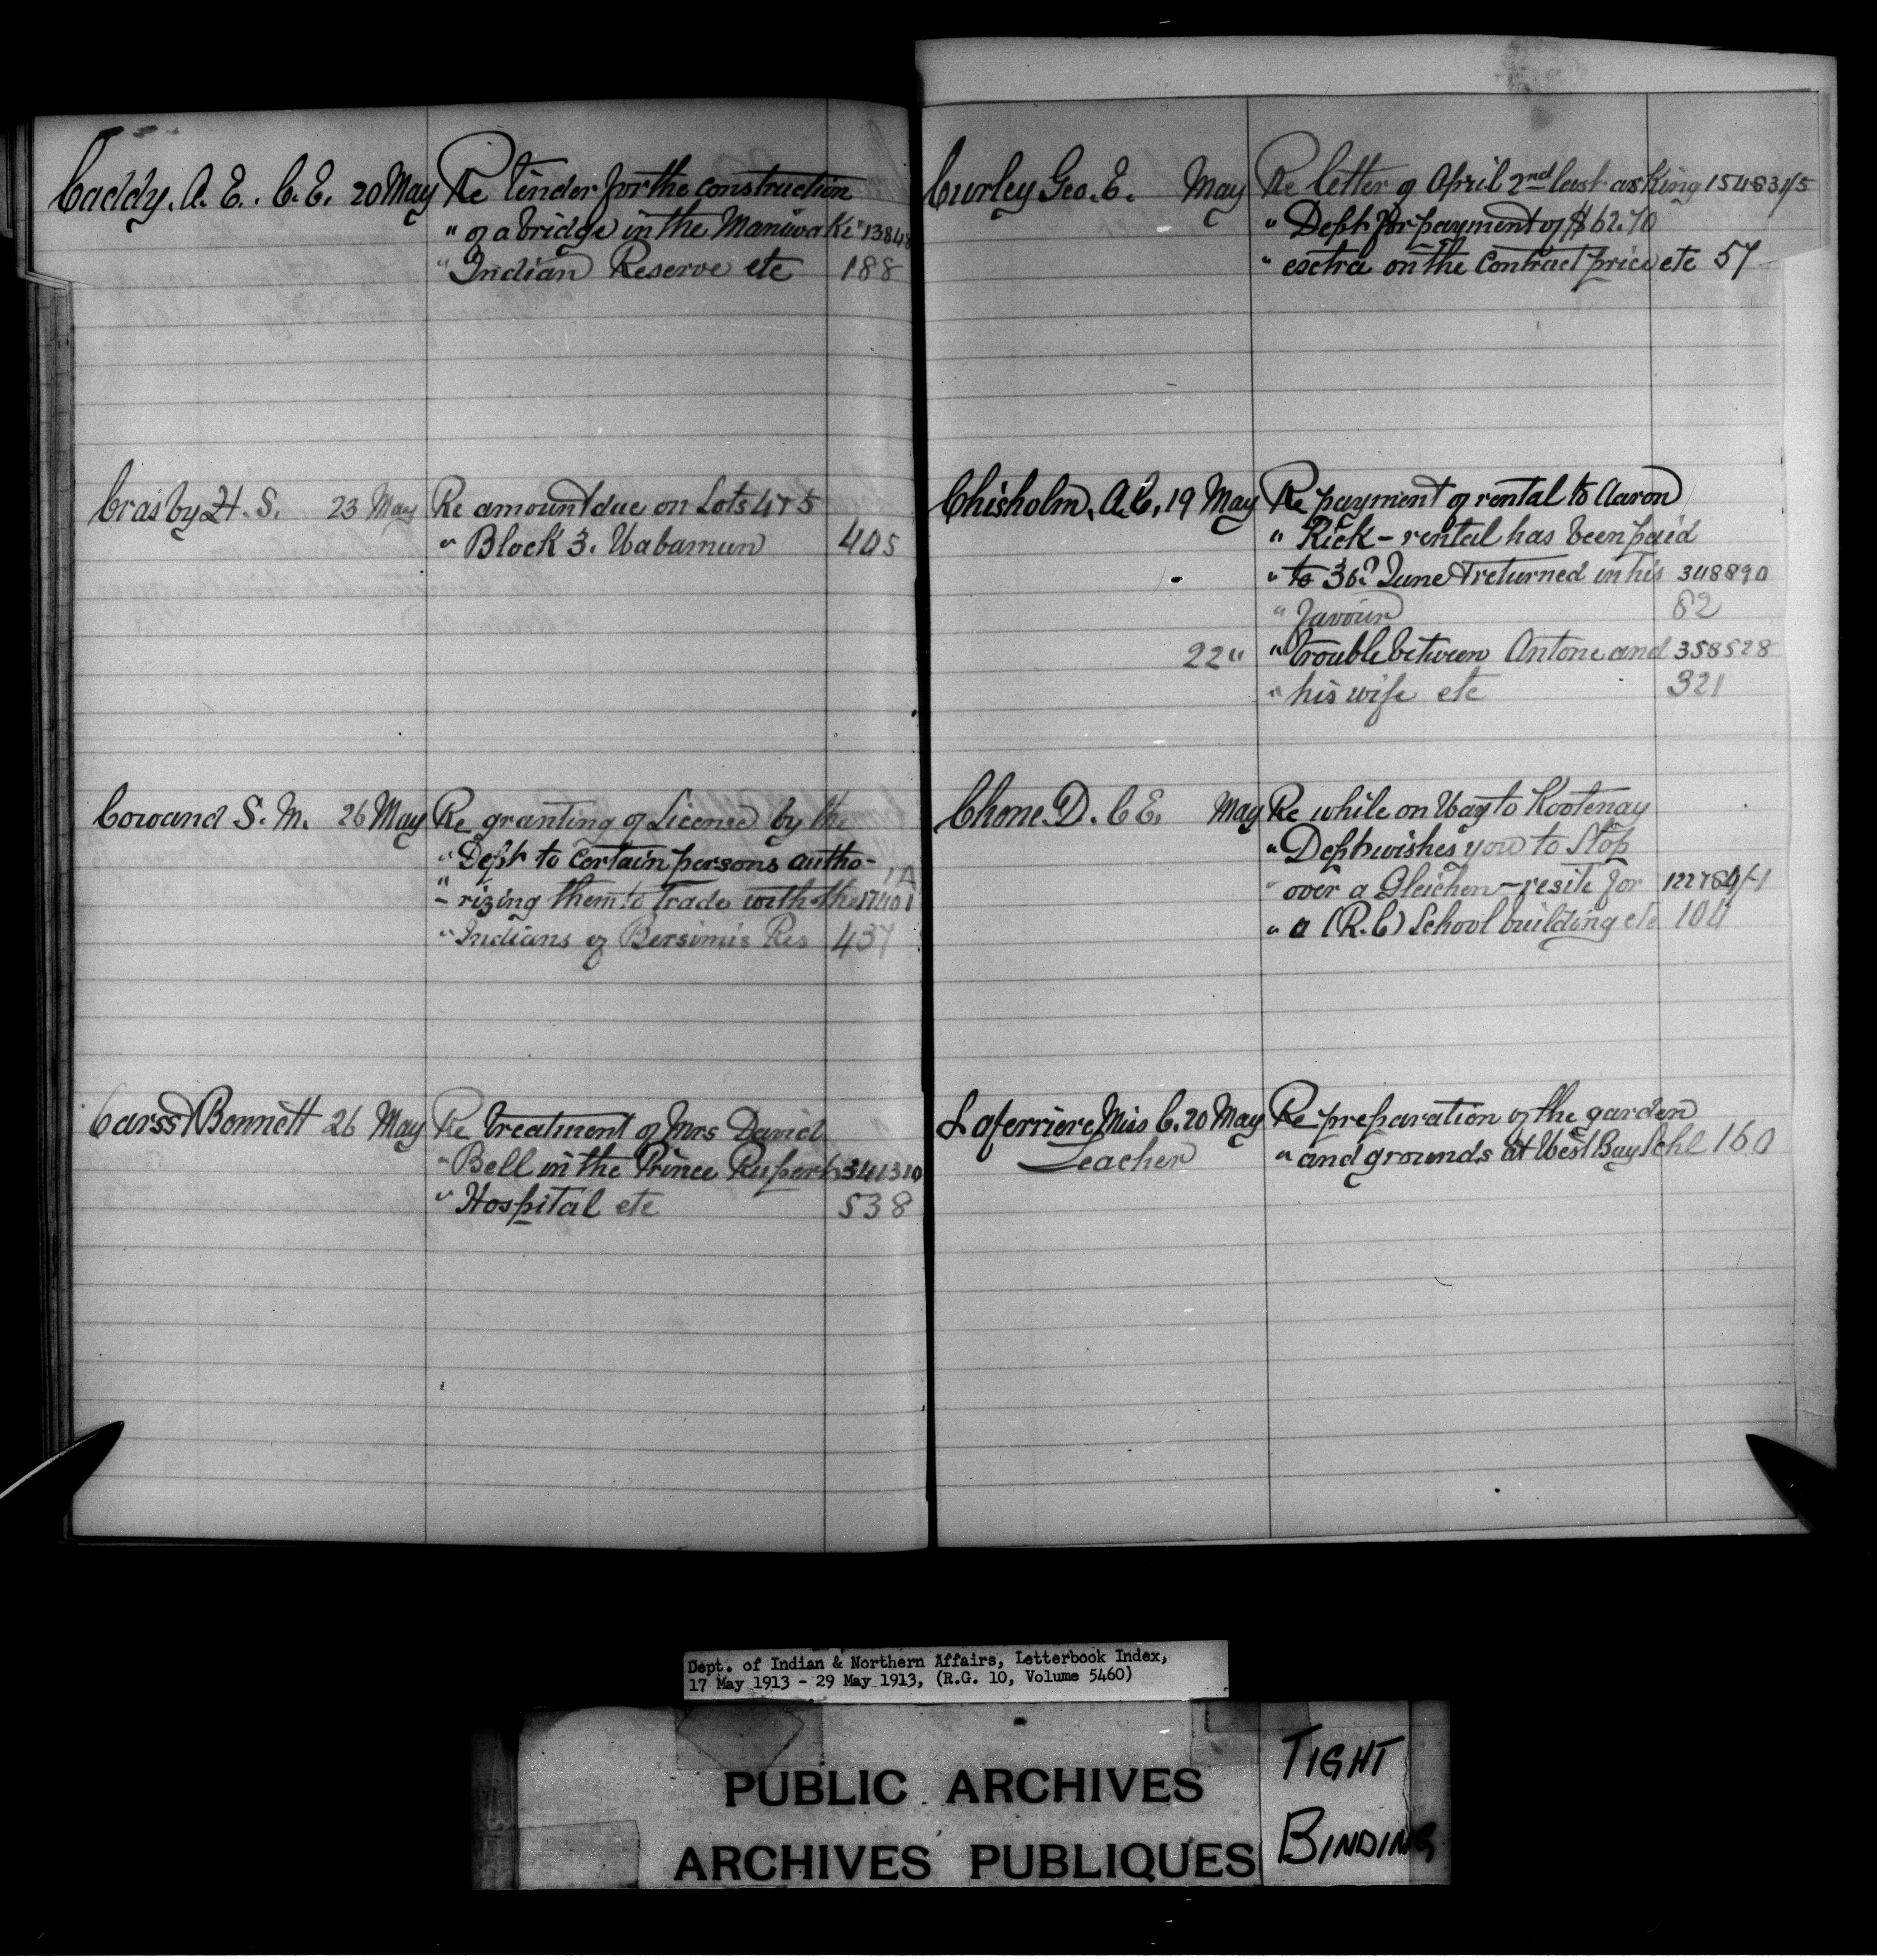 Caddy. A. E. . C. E. 20 May Re tender for the construction
" of a bridge in the Maniwaki 13848
" Indian Reserve etc 188
Crasby H. S. 23 May Re amount due on Lots 4 + 5
" Block 3. Wabamun 405
Cowand S. M. 26 May Re granting of License by the
" Dept to certain persons autho-
" - rizing them to trade with the 17401 1A
" Indians of Bersimis Res 437
Carss & Bennett 26 May Re treatment of Mrs David
" Bell in the Prince Rupert 341310
" Hospital etc 538
Curley Geo. E. May Re letter of April 2nd last asking 154831/5
" Dept for payment of $62.70
" esctra on the contract price etc 57
Chisholm, A. C, 19 May Re payment of rental to Aaron
" Rick - rental has been paid
" to 30? June & returned in his 348890
" favour 62
22 " " trouble between Antone and 358528
" his wife etc 321
Chone. D. C E. May Re while on Way to Kootenay
" Dept wishes you to Stop
" over a Gleichen - resite for 122784/-1
" a (R.C) School building etc 104
Laferriere, Miss C. 20 May Re preparation of the garden
Teacher " and grounds at West Bay Schl 160
Dept. of Indian & Northern Affairs, Letterbook Index,
17 May 1913 - 29 May 1913, (R.G. 10, Volume 5460)
PUBLIC ARCHIVES
ARCHIVES PUBLIQUES
TIGHT
BINDING